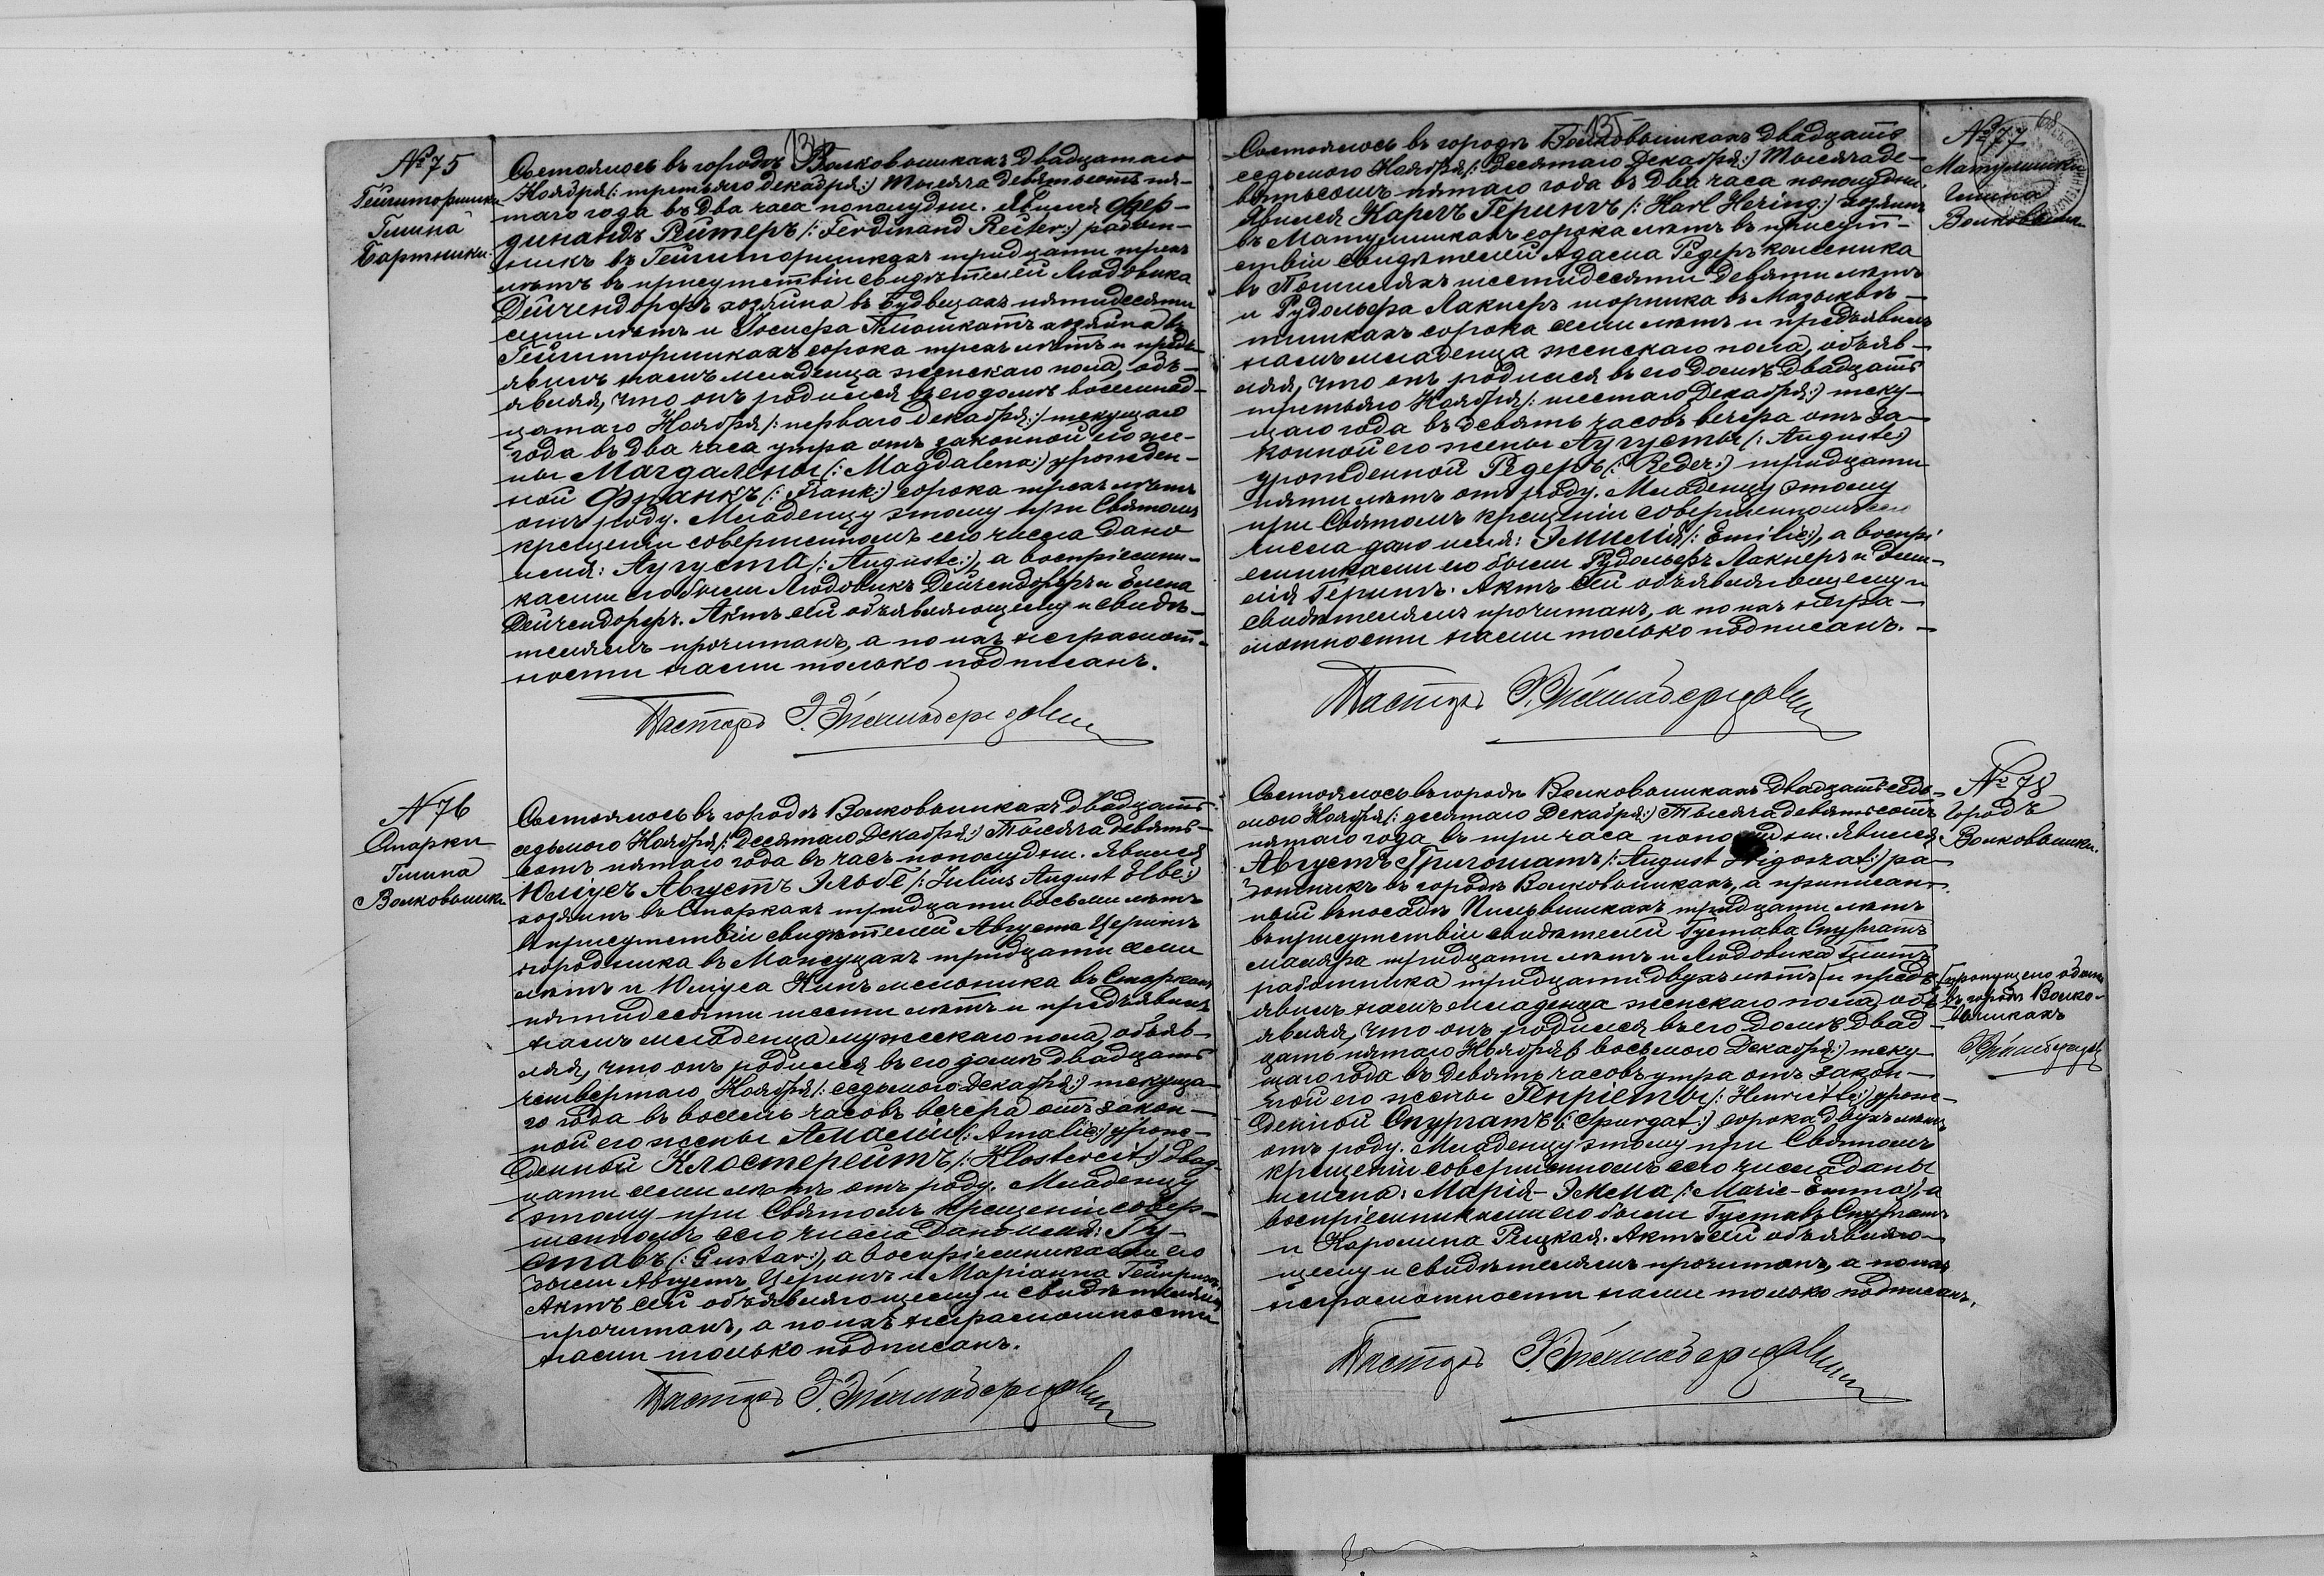 134
№ 75
Гейшторишки
Гмина
Бартники.
Состоялось въ городѣ Волковышкахъ двадцатаго
Ноября /: третьяго Декабря :/ тысяча девятьсотъ пя-
таго года въ два часа пополудни. Явился Фер-
динандъ Рейтеръ /: Ferdinand Reiter :/ работ-
никъ въ Гейшторишкахъ тридцати трехъ
лѣтъ въ присутствіи свидѣтелей Людовика
Дейчендорфъ хозяина въ Будвецахъ пятидесяти
семи лѣтъ и Іосифа хозяина въ
Гейшторишкахъ сорока трехъ лѣтъ и предъ-
явилъ намъ младенца женскаго пола, объ-
являя, что онъ родился въ его домѣ восемнад-
цатаго Ноября /: перваго Декабря :/ текущаго
года въ два часа утра отъ законной его же-
ны Магдалены /: Magdalena :/ урожден-
ной Франкъ /: Frank :/ сорока трехъ лѣтъ
отъ роду. Младенцу этому при Святомъ
крещеніи совершенномъ сего числа дано
имя: Аугуста /: Auguste :/, а воспріемни-
ками его были Людовикъ Дейчендорфъ и Елена
Дейчендорфъ. Актъ сей объявляющему и свидѣ-
телямъ прочитанъ, а по ихъ неграмот-
ности нами только подписанъ.
Пасторъ
№ 76
Старки
Гмина
Волковышки
Состоялось въ городѣ Волковышкахъ двадцать
седьмого Ноября /: Десятаго Декабря :/ Тысяча девять-
сотъ пятаго года въ часъ пополудни. Явился
Юліусъ Августъ Эльбе /: Julius August Elbe :/
хозяинъ въ Старкахъ тридцати восьми лѣтъ
въ присутствіи свидѣтелей Августа Церинъ
огородника въ тридцати семи
лѣтъ и Юліуса мельника въ Старкахъ
пятидесяти шести лѣтъ и предъявилъ
намъ младенца мужескаго пола, объяв-
ляя, что онъ родился въ его домѣ двадцать
четвертаго Ноября /: седьмого Декабря :/ текуща-
го года въ восемь часовъ вечера отъ закон-
ной его жены Амаліи /: Amalie :/ урож-
денной Клостерейтъ /: Klostereit :/ двад-
цати семи лѣтъ отъ роду. Младенцу
этому при Святомъ крещеніи совер-
шенномъ сего числа дано имя: Гу-
ставъ /: Gustav :/, а воспріемниками его
были Августъ Церинъ и Маріанна Гейнрихъ.
Актъ сей объявляющему и свидѣтелямъ
прочитанъ, а по ихъ неграмотности
нами только подписанъ.
Пасторъ
135
68
№ 77
Матулишки
Гмина
Волковышки
Состоялось въ городѣ Волковышкахъ двадцать
седьмого Ноября /: Десятаго Декабря :/ Тысяча де-
вятьсотъ пятаго года въ два часа пополудни.
Явился Карлъ Герингъ /: Karl Hering :/ хозяинъ
въ Матулишкахъ сорока лѣтъ въ присут-
ствіи свидѣтелей Адама Редеръ колесника
въ шестидесяти девяти лѣтъ
и Рудольфа Лакнеръ шорника въ
сорока семи лѣтъ и предъявилъ
намъ младенца женскаго пола, объяв-
ляя, что онъ родился въ его домѣ двадцать
третьяго Ноября /: шестаго Декабря :/ теку-
щаго года въ девять часовъ вечера отъ за-
конной его жены Аугусты /: Auguste :/
урожденной Редеръ /: Reder :/ тридцати
пяти лѣтъ отъ роду. Младенцу этому
при Святомъ крещеніи совершенномъ сего
числа дано имя: Эмилія /: Emilie :/, а воспрі-
емниками его были Рудольфъ Лакнеръ и Эми-
лія Герингъ. Актъ сей объявляющему и
свидѣтелямъ прочитанъ, а по ихъ негра-
мотности нами только подписанъ.
Пасторъ
№ 78
Городъ
Волковышки.
Состоялось въ городѣ Волковышкахъ двадцать седь-
мого Ноября /: десятаго Декабря :/ Тысяча девятьсотъ
пятаго года въ три часа пополудни. Явился
Августъ Григошатъ /: August Grigoszat :/ ра-
ботникъ въ городѣ Волковышкахъ, а приписан-
ный въ посадѣ Пильвишкахъ тридцати лѣтъ
въ присутствіи свидѣтелей Густава Спургатъ
маляра тридцати лѣтъ и Людовика
работника тридцати двухъ лѣтъ и предъ-
явилъ намъ младенца женскаго пола, объ-
являя, что онъ родился въ его домѣ двад-
цать пятаго Ноября /: восьмого Декабря :/ теку-
щаго года въ девять часовъ утра отъ закон-
ной его жены Генріеты /: Henriette :/ урож-
денной Спургатъ /: Spurgat :/ сорока двухъ лѣтъ
отъ роду. Младенцу этому при Святомъ
крещеніи совершенномъ сего числа даны
имена: Марія-Эмма /: Marie-Emma :/, а
воспріемниками его были Густавъ Спургатъ
и Каролина Рецкая. Актъ сей объявляю-
щему и свидѣтелямъ прочитанъ, а по ихъ
неграмотности нами только подписанъ.
Пасторъ
пропущено оба
въ городѣ Волко-
вышкахъ